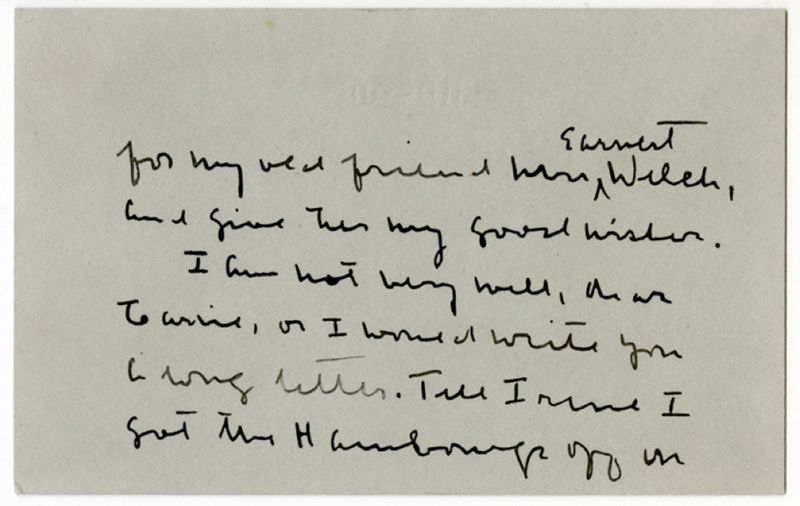 Earnest
for my old friend Mrs. Welch,
and give her my good wishes.
I am not very well, dear
or I would write you
a long letter. Tell Irene I
got the Hambourgs off on